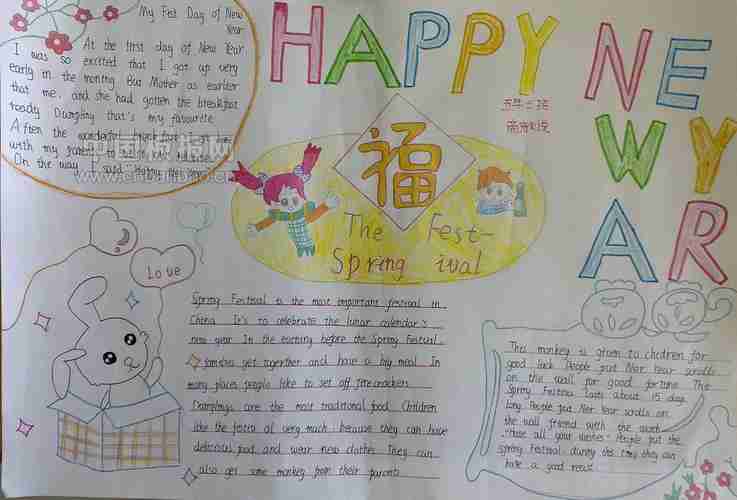 My Fest Day of New
Year
At the first day of New Year
I was so excited that I got up very
early in the morning. But Mother as earlier
that me, and she had gotten the breakfast
ready Dumpling that's my favourite
After the wonderful breakfast
with my
On the way I said
HAPPY
NEW
YAR
福
The Fest-
Spring ival
love
Spring Festival is the most important festival in
China It's to celebrate the lunar calendar's
new year. In the evening before the Spring Festival
families get together and have a big meal. In
many places people like to set off firecrackers
Dumplings are the most traditional food. Children
like the festival very much because they can have
delicious food and wear new clothes They can
also get some monkey from their parents
This monkey is given to children for
good luck People put New Year scrolls
on the wall for good fortune The
Spring Festival lasts about 15 days
long People put New Year scrolls on
the wall friend with the words
"those all your wishes" People put the
spring Festival during this they they can
have a good rest